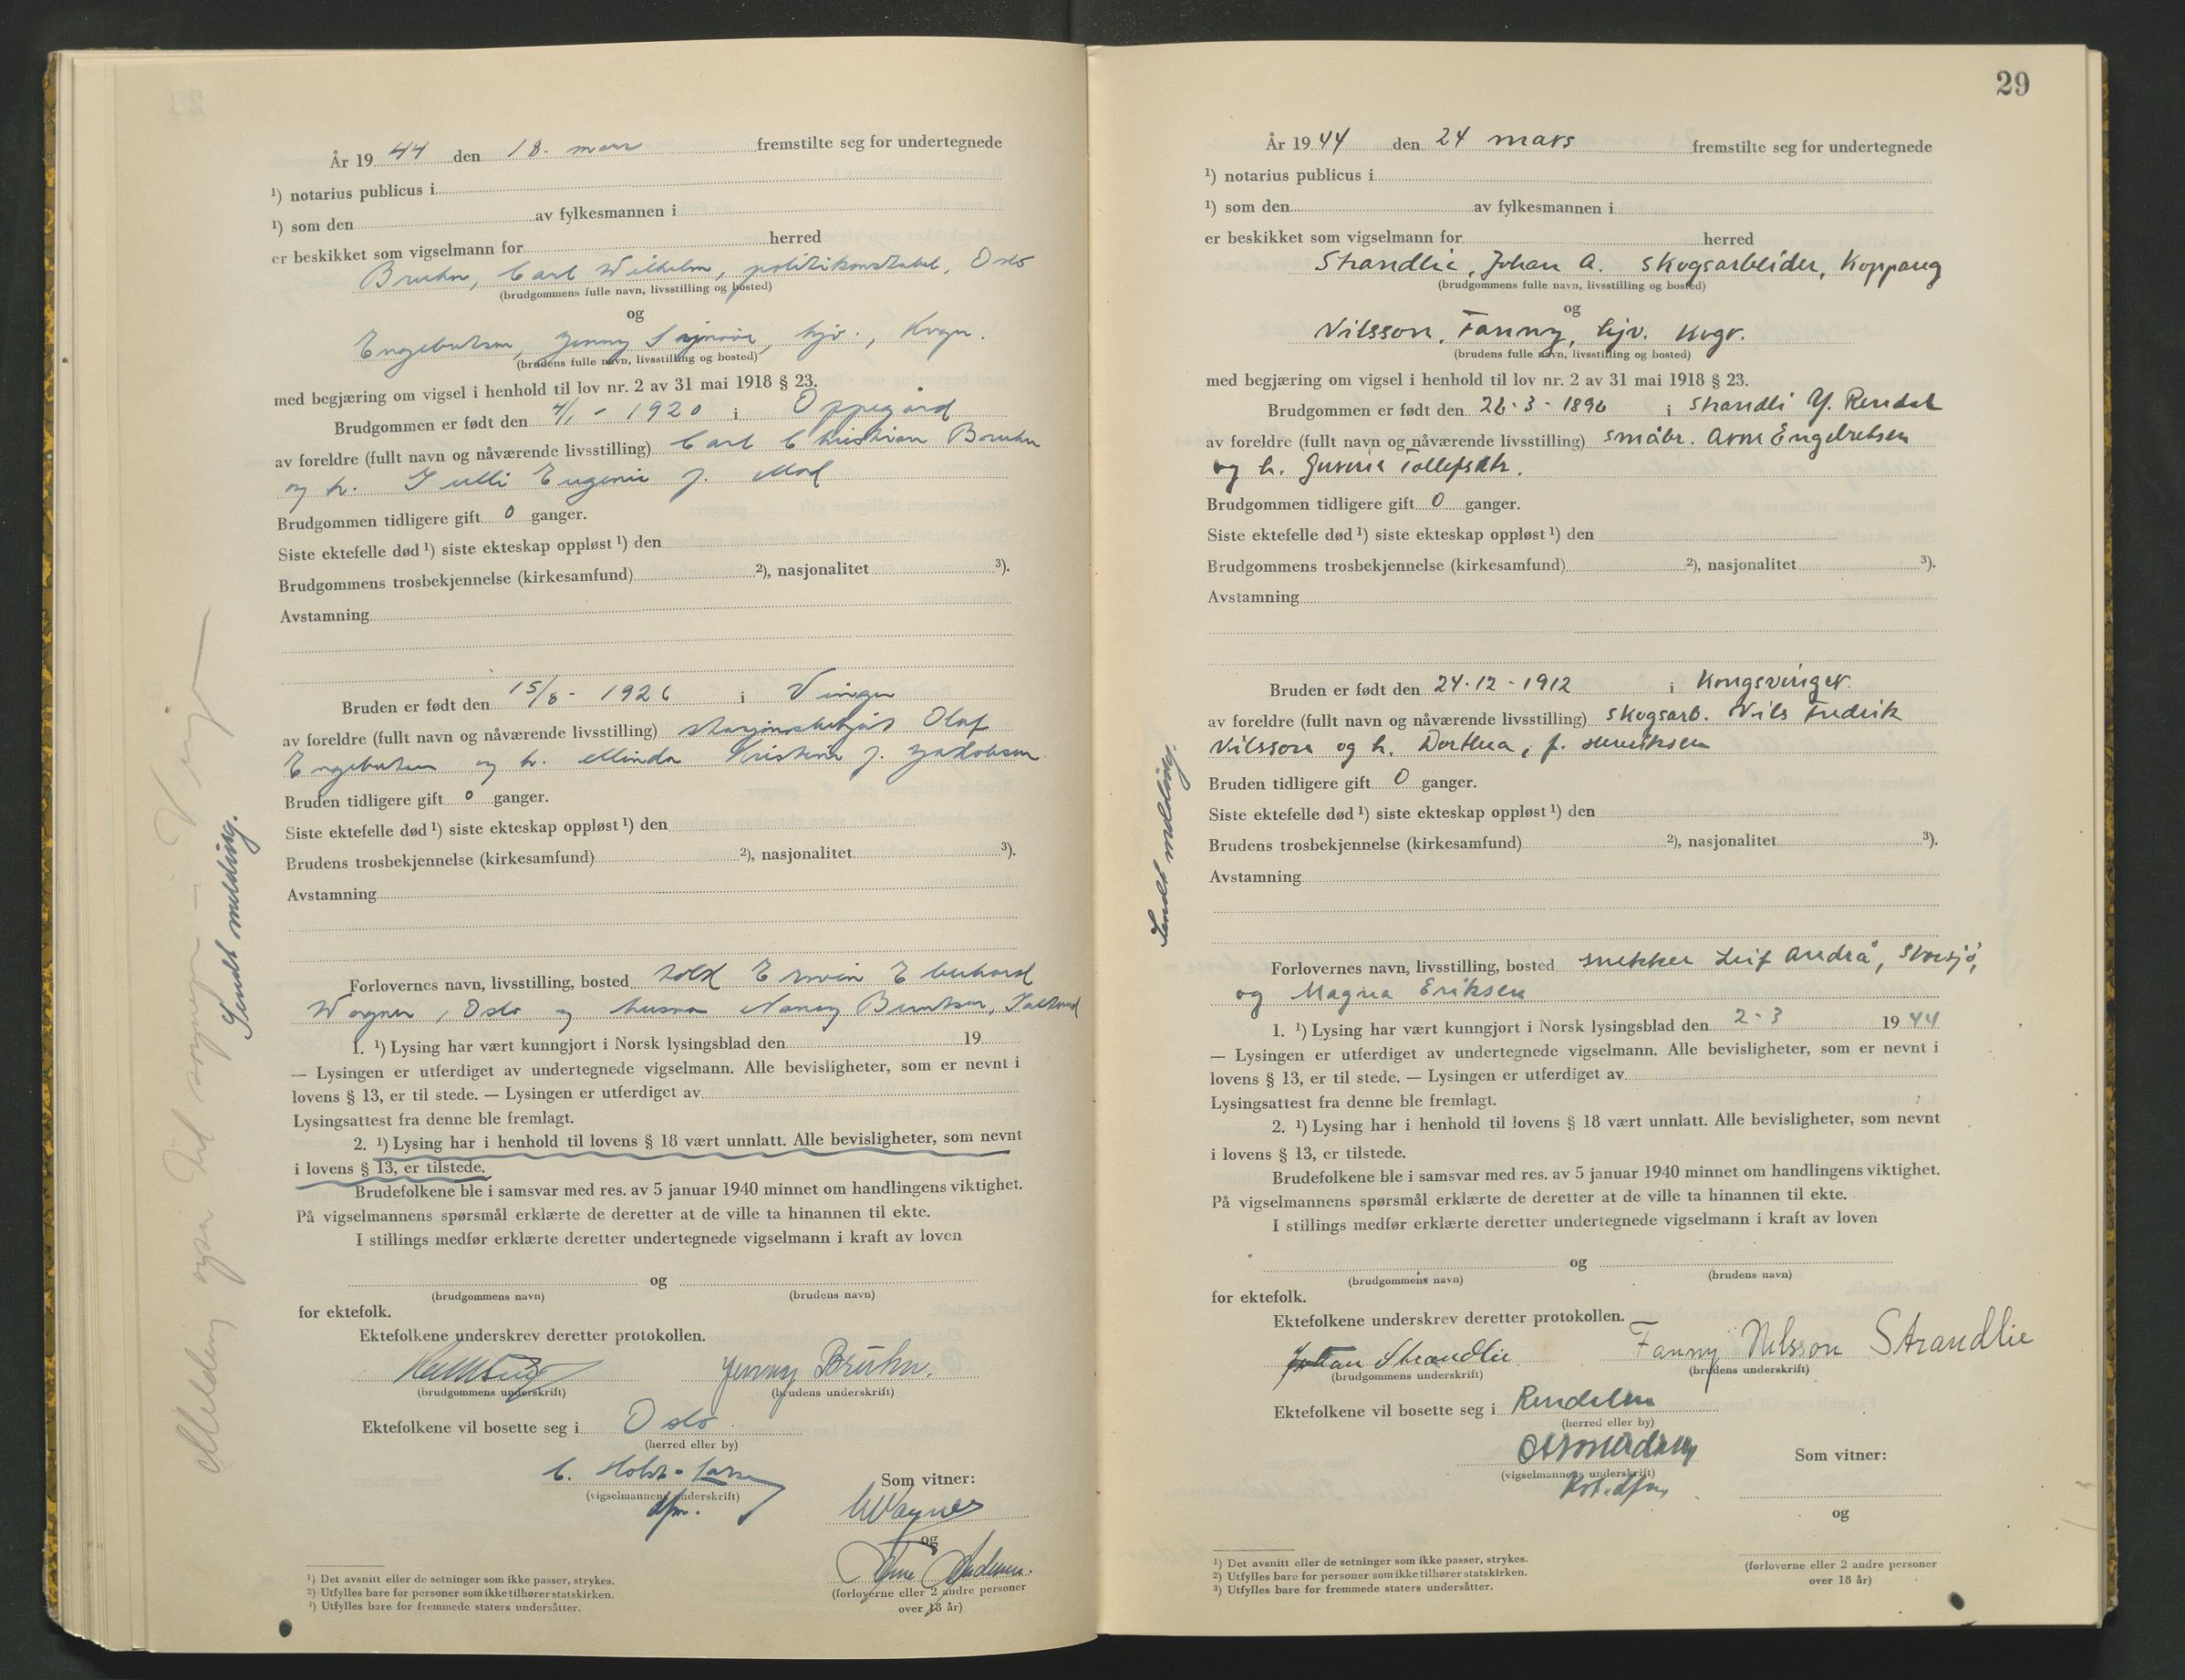 År 1944 den 18. mars fremstilte seg for undertegnede
¹) notarius publicus i
¹) som den av fylkesmannen i
er beskikket som vigselmann for herred
Bruhn, Carl Wilhelm, politikonstabel, Oslo
(brudgommens fulle navn, livsstilling og bosted)
og
Engebretsen, Jenny Synnøve, hjv., Kvgr.
(brudens fulle navn, livsstilling og bosted)
med begjæring om vigsel i henhold til lov nr. 2 av 31 mai 1918 § 23.
Brudgommen er født den 4/1 - 1920 i Oppegård
av foreldre (fullt navn og nåværende livsstilling) Carl Christian Bruhn
og h. Julli Eugenie f. Mod
Brudgommen tidligere gift 0 ganger.
Siste ektefelle død ¹) siste ekteskap oppløst ¹) den
Brudgommens trosbekjennelse (kirkesamfund) ²), nasjonalitet ³).
Avstamning
Bruden er født den 15/8 - 1926 i Vinger
av foreldre (fullt navn og nåværende livsstilling) stasjonsbetjent Olaf
Engebretsen og h. Minda Kristine f. Jakobsen
Bruden tidligere gift 0 ganger.
Siste ektefelle død ¹) siste ekteskap oppløst ¹) den
Brudens trosbekjennelse (kirkesamfund) ²), nasjonalitet ³).
Avstamning
Forlovernes navn, livsstilling, bosted Erwin Eberhard
Wagner, Oslo og husmor Nancy Berntsen,
1. ¹) Lysing har vært kunngjort i Norsk lysingsblad den 19
— Lysingen er utferdiget av undertegnede vigselmann. Alle bevisligheter, som er nevnt i
lovens § 13, er til stede. — Lysingen er utferdiget av
Lysingsattest fra denne ble fremlagt.
2. ¹) Lysing har i henhold til lovens § 18 vært unnlatt. Alle bevisligheter, som nevnt
i lovens § 13, er tilstede.
Brudefolkene ble i samsvar med res. av 5 januar 1940 minnet om handlingens viktighet.
På vigselmannens spørsmål erklærte de deretter at de ville ta hinannen til ekte.
I stillings medfør erklærte deretter undertegnede vigselmann i kraft av loven
og
(brudgommens navn) (brudens navn)
for ektefolk.
Ektefolkene underskrev deretter protokollen.
Jenny Bruhn.
(brudgommens underskrift) (brudens underskrift)
Ektefolkene vil bosette seg i Oslo.
(herred eller by)
C. Holst-Larsen
Som vitner:
(vigselmannens underskrift)
dfm.
Wagner
og
Arne Andersen.
(forloverne eller 2 andre personer
over 18 år)
¹) Det avsnitt eller de setninger som ikke passer, strykes.
²) Utfylles bare for personer som ikke tilhører statskirken.
³) Utfylles bare for fremmede staters undersåtter.
Sendt melding.
Melding også til sognepr. i Vinger
29
År 1944 den 24 mars fremstilte seg for undertegnede
¹) notarius publicus i
¹) som den av fylkesmannen i
er beskikket som vigselmann for herred
Strandlie, Johan A. skogsarbeider, Koppang
(brudgommens fulle navn, livsstilling og bosted)
og
Nilsson, Fanny, hjv. Kvgr.
(brudens fulle navn, livsstilling og bosted)
med begjæring om vigsel i henhold til lov nr. 2 av 31 mai 1918 § 23.
Brudgommen er født den 26-3-1896 i Strandli Y. Rendal
av foreldre (fullt navn og nåværende livsstilling) småbr. Arne Engebretsen
og h. Tollefsdtr.
Brudgommen tidligere gift 0 ganger.
Siste ektefelle død ¹) siste ekteskap oppløst ¹) den
Brudgommens trosbekjennelse (kirkesamfund) ²), nasjonalitet ³).
Avstamning
Bruden er født den 24-12-1912 i Kongsvinger.
av foreldre (fullt navn og nåværende livsstilling) skogsarb. Nils Fredrik
Nilsson og h. Dorthea, f. Henriksen
Bruden tidligere gift 0 ganger.
Siste ektefelle død ¹) siste ekteskap oppløst ¹) den
Brudens trosbekjennelse (kirkesamfund) ²), nasjonalitet ³).
Avstamning
Forlovernes navn, livsstilling, bosted snekker Leif Andrå, Storsjø,
og Magna Eriksen
1. ¹) Lysing har vært kunngjort i Norsk lysingsblad den 2-3 1944
— Lysingen er utferdiget av undertegnede vigselmann. Alle bevisligheter, som er nevnt i
lovens § 13, er til stede. — Lysingen er utferdiget av
Lysingsattest fra denne ble fremlagt.
2. ¹) Lysing har i henhold til lovens § 18 vært unnlatt. Alle bevisligheter, som nevnt
i lovens § 13, er tilstede.
Brudefolkene ble i samsvar med res. av 5 januar 1940 minnet om handlingens viktighet.
På vigselmannens spørsmål erklærte de deretter at de ville ta hinannen til ekte.
I stillings medfør erklærte deretter undertegnede vigselmann i kraft av loven
og
(brudgommens navn) (brudens navn)
for ektefolk.
Ektefolkene underskrev deretter protokollen.
Johan Strandlie Fanny Nilsson Strandlie
(brudgommens underskrift) (brudens underskrift)
Ektefolkene vil bosette seg i Rendalen
(herred eller by)
Som vitner:
(vigselmannens underskrift)
og
(forloverne eller 2 andre personer
over 18 år)
¹) Det avsnitt eller de setninger som ikke passer, strykes.
²) Utfylles bare for personer som ikke tilhører statskirken.
³) Utfylles bare for fremmede staters undersåtter.
Sendt melding.